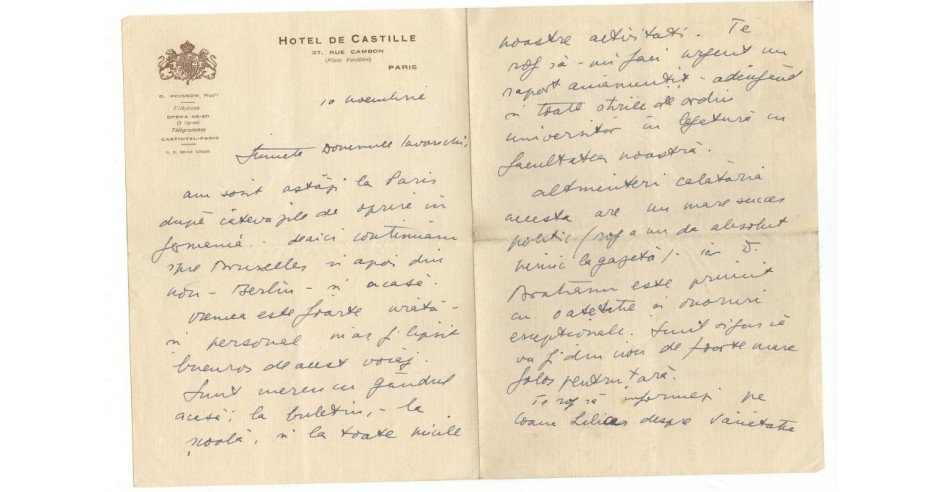 HOTEL DE CASTILLE
37, RUE CAMBON
(Place Vendôme)
PARIS
D. POISSON, Propre
Téléphone
OPÉRA
(3 lignes)
Télégrammes
CASTIOTEL-PARIS
10 noembrie
Iubite Domnule Iavorschi,
am sosit astăzi la Paris
după câteva zile de oprire în
Germania. deaici continuăm
spre Bruxelles si apoi din
nou - Berlin - si acasă.
vremea este foarte urâtă -
si personal m'as fi lipsit
bucuros de acest voiaj.
Sunt mereu cu gândul
acasă; la buletin, - la
școală, si la toate micile
noastre activitati. Te
rog să-mi faci urgent un
raport amănuntit - adăugând
si toate stirile de ordin
universitar în legătură cu
facultatea noastră.
altminteri călătoria
aceasta are un mare succes
politic (rog a nu da absolut
nimic la gazetă) - iar D.
Bratianu este primit
cu si onoruri
exceptionale. Sunt sigur că
va fi din nou de foarte mare
folos pentru țară.
Te rog să informezi pe
coana Lilica despre varietatie